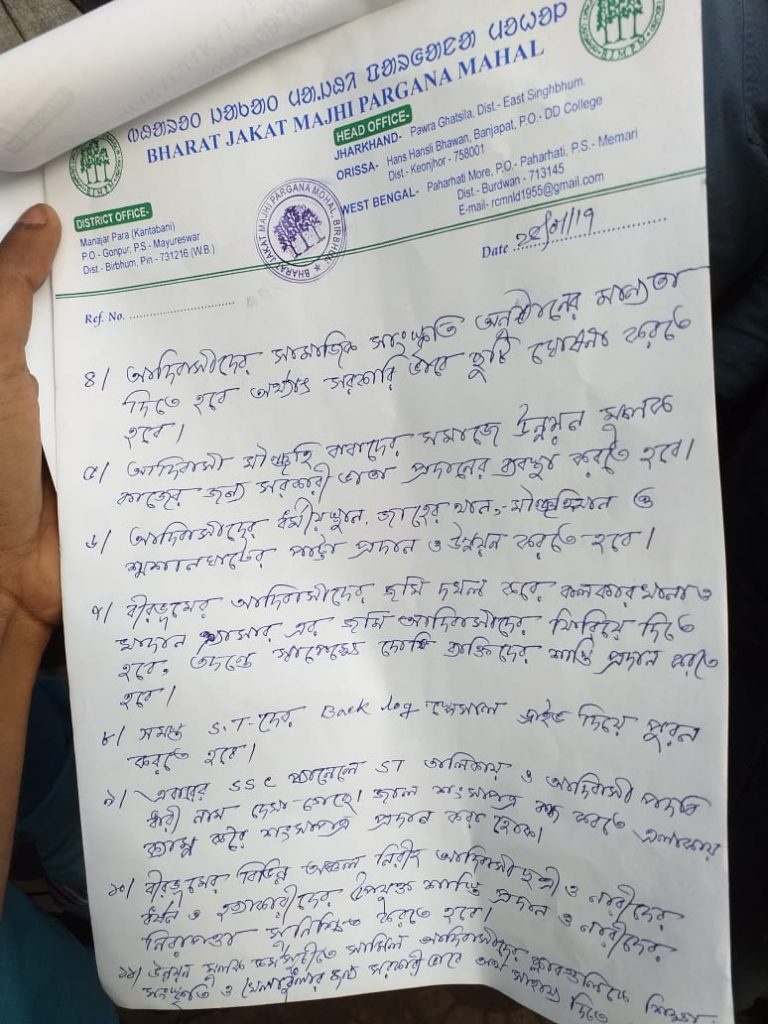 BHARAT JAKAT MAJHI PARGANA MAHAL
HEAD OFFICE-
JHARKHAND- Pawra Ghatsila, Dist.- East Singhbhum.
ORISSA- Hans Hansli Bhawan, Banjapat, P.O.- DD College
Dist.- Keonjhor - 758001
WEST BENGAL- Paharhati More, P.O.- Paharhati, P.S.- Memari
Dist.- Burdwan - 713145
E-mail- rcmnld1955@gmail.com
DISTRICT OFFICE-
Manajar Para (Kantabani)
P.O.- Gonpur, P.S - Mayureswar
Dist - Birbhum, Pin - 731216 (W.B.)
BHARAT JAKAT MAJHI PARGANA MOHAL, BIRBHUM
Date
Ref. No.
৪/ আদিবাসীদের সামাজিক সাংস্কৃতি অনুষ্ঠানের মান্যতা
দিতে হবে অর্থ্যাৎ সরকারি ভাবে ছুটি ঘোষনা করতে
হবে।
৫/ আদিবাসী বাবাদের সমাজে উন্নয়ন মূলক
কাজের জন্য সরকারী ভাতা প্রদানের ব্যবস্থা করতে হবে।
৬/ আদিবাসীদের ধর্মীয়স্থান, জাহের থান, ও
শ্মশানঘাটের পাট্টা প্রদান ও উন্নয়ন করতে হবে।
৭/ বীরভূমের আদিবাসীদের জমি দখল করে কলকারখানা ও
খাদান এর জমি আদিবাসীদের ফিরিয়ে দিতে
হবে, তদন্ত সাপেক্ষে দোষি ব্যক্তিদের শাস্তি প্রদান করতে
হবে।
৮/ সমস্ত S.T-দের Back log স্পেসাল ড্রাইভ দিয়ে পুরন
করতে হবে।
৯/ এবারের SSC প্যানেলে ST তালিকায় ও আদিবাসী পদবি
ধারী নাম দেখা গেছে। জাল শংসাপত্র করতে এলাকায়
ক্যাম্প করে শংসাপত্র প্রদান করা হোক।
১০/ বীরভূমের বিভিন্ন অঞ্চলে নিরীহ আদিবাসী ও নারীদের
ধর্ষন ও হত্যাকারীদের উপযুক্ত শাস্তি প্রদান ও নারীদের
নিরাপত্তা সুনিশ্চিত করতে হবে।
১১/ উন্নয়ন মূলক কর্মসূচীতে সামিল আদিবাসীদের ক্লাবগুলিকে শিক্ষা
সংস্কৃতি ও খেলাধুলার জন্য সরকারী ভাবে অর্থ সাহায্য দিতে